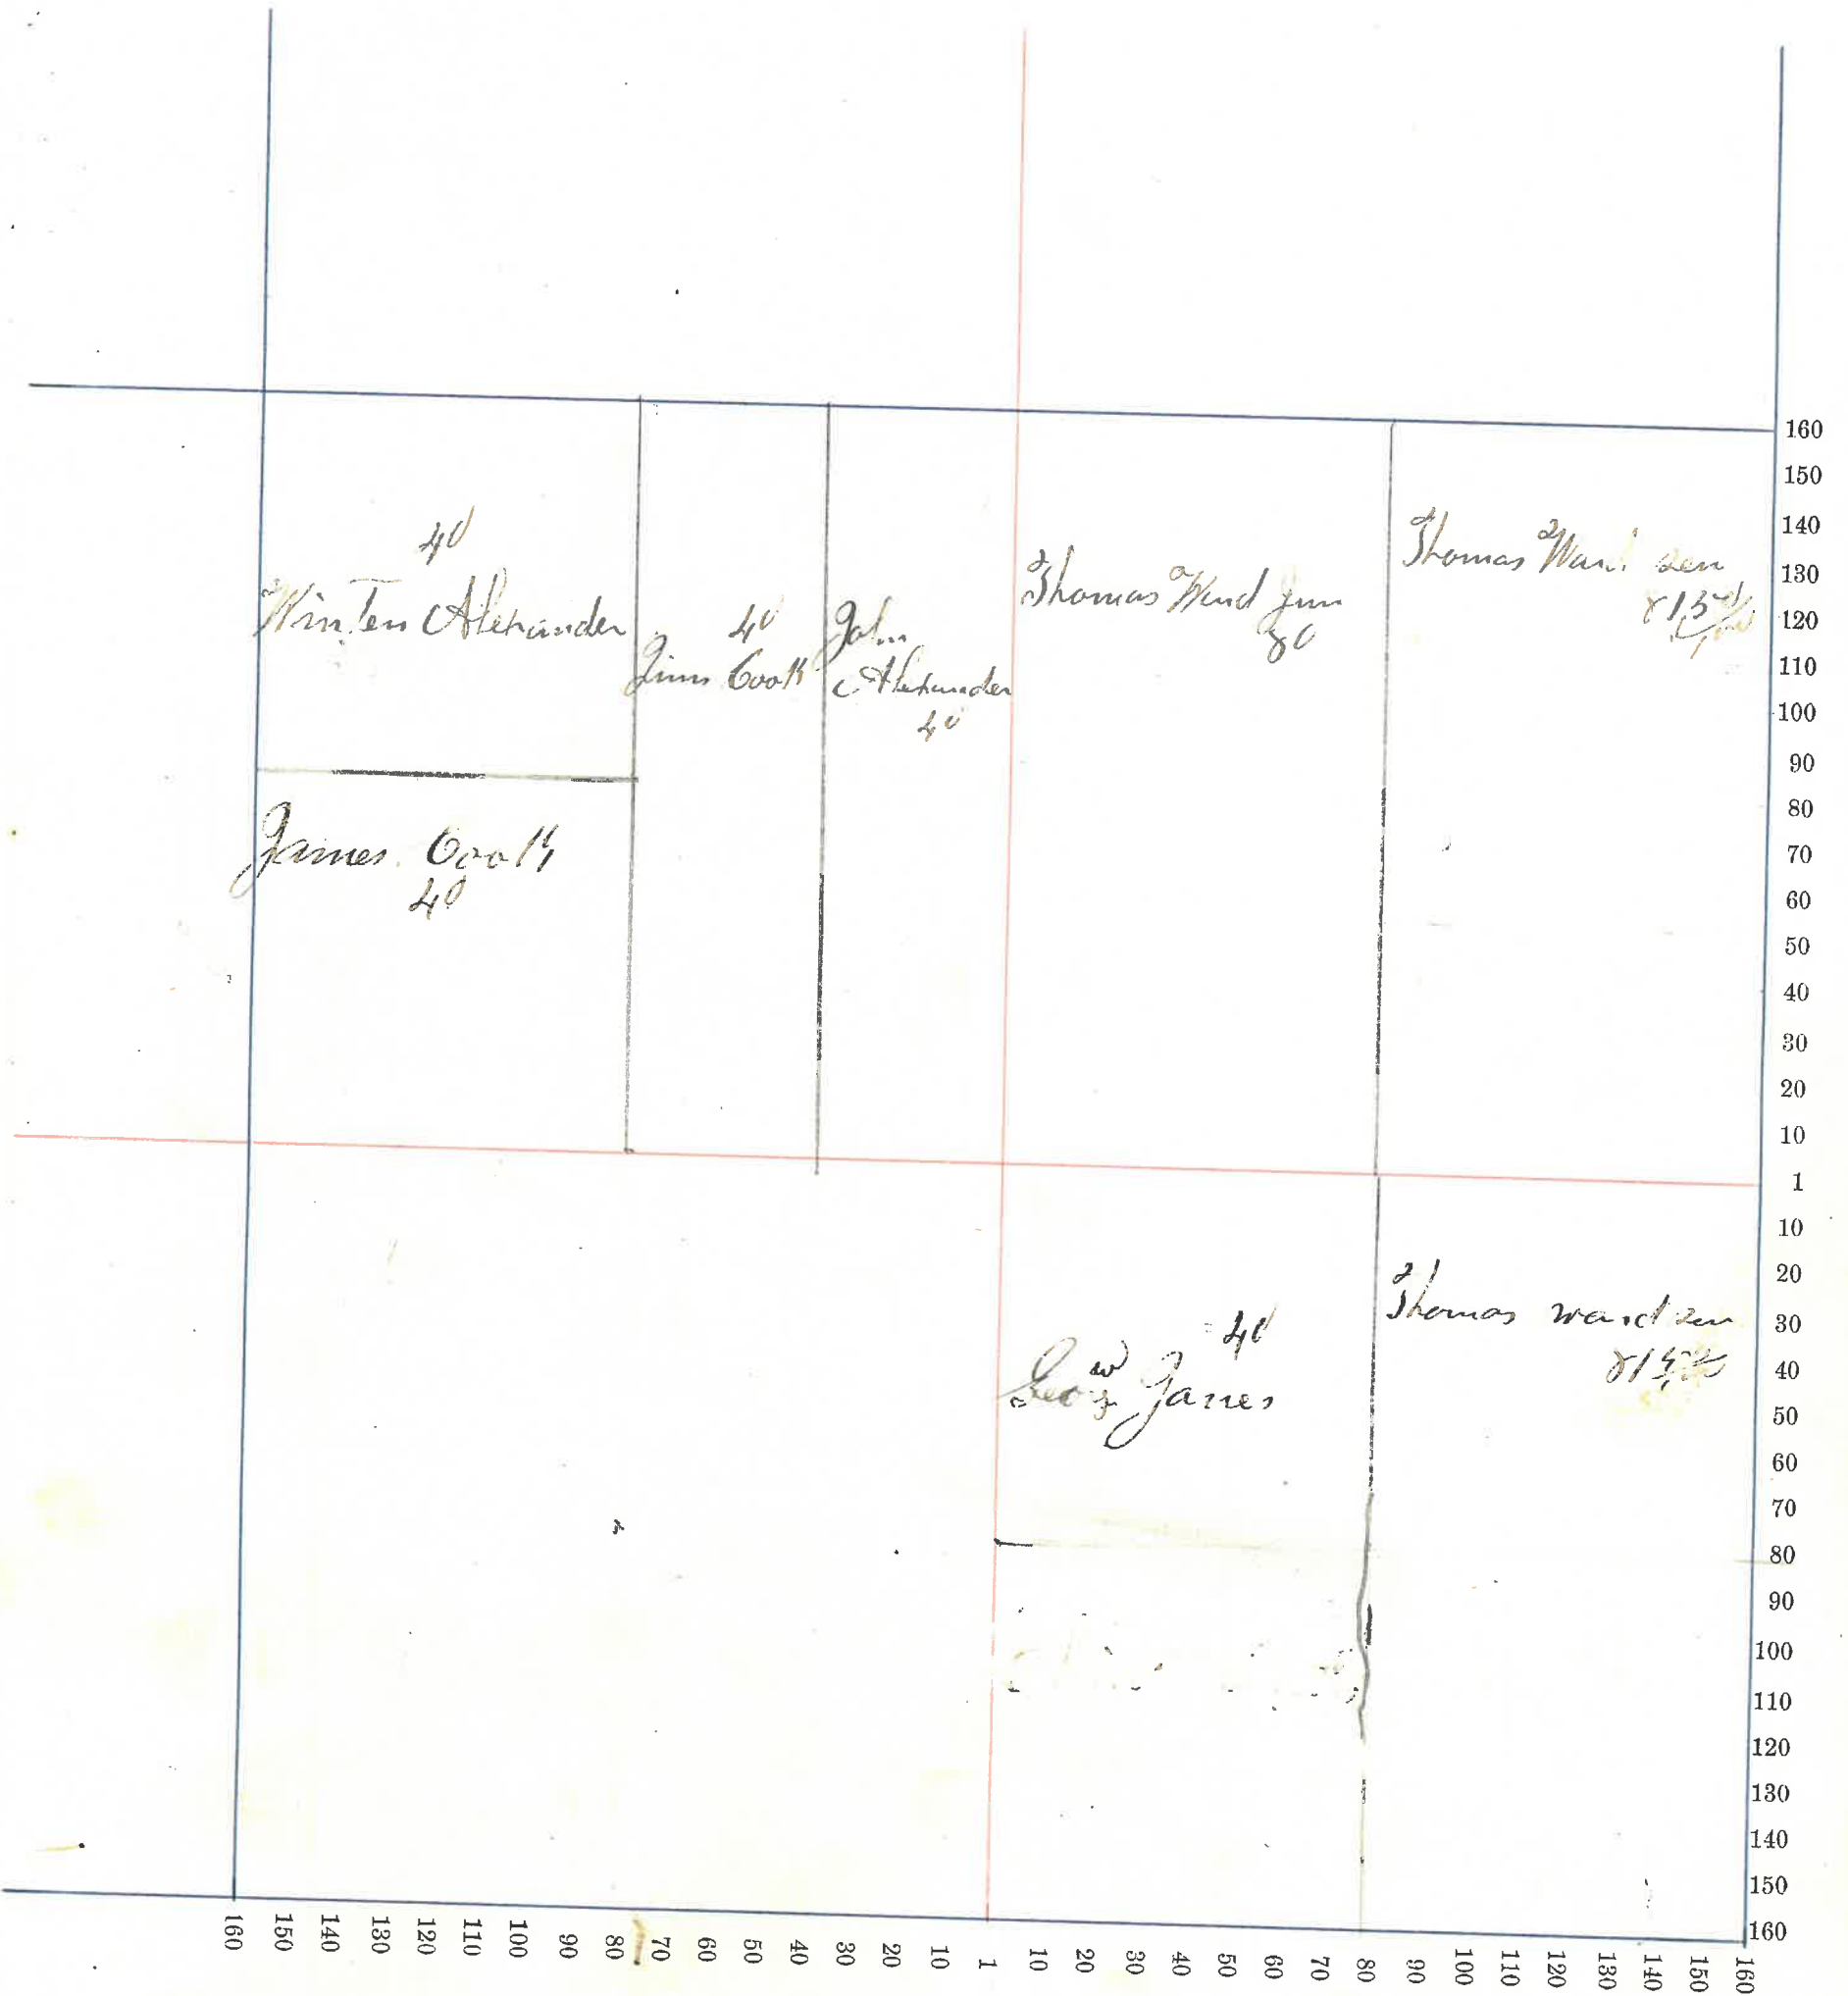 40
Winten Alexander
40
Jim Cook
John
Alexander
40
Thomas Ward Jun
80
Thomas Ward sen
James Cook
40
40
Geo W James
Thomas ward sen
160
150
140
130
120
110
100
90
80
70
60
50
40
30
20
10
1
10
20
30
40
50
60
70
80
90
100
110
120
130
140
150
160
160
150
140
130
120
110
100
90
80
70
60
50
40
30
20
10
1
10
20
30
40
50
60
70
80
90
100
110
120
130
140
150
160